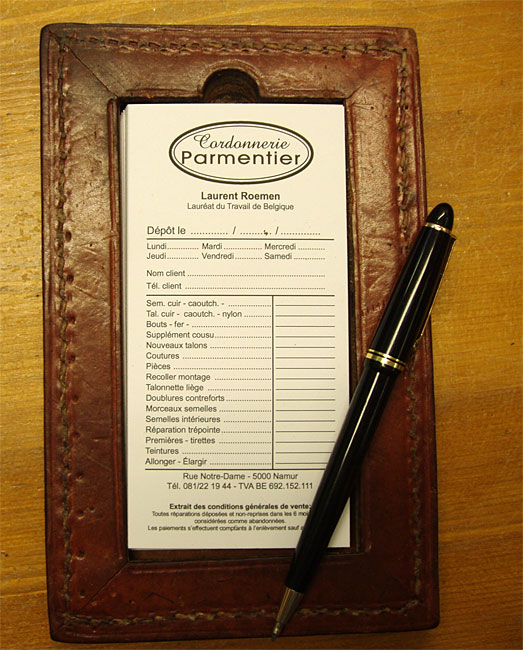 Cordonnerie
Parmentier
Laurent Roemen
Lauréat du Travail de Belgique
Dépôt le ............ / ........... / .............
Lundi........... Mardi .............. Mercredi ..........
Jeudi............ Vendredi.......... Samedi ............
Nom client ......................................................
Tél. client .......................................................
Sem. cuir - caoutch. - ..................
Tal. cuir - caoutch. - nylon ...........
Bouts - fer - ...................................
Supplément cousu.......................
Nouveaux talons ..........................
Coutures .......................................
Pièces ..........................................
Recoller montage .........................
Talonnette liège ............................
Doublures contreforts...................
Morceaux semelles ......................
Semelles intérieures .....................
Réparation trépointe.....................
Premières - tirettes .......................
Teintures .......................................
Allonger - Élargir ...........................
Rue Notre-Dame - 5000 Namur
Tél. 081/22 19 44 - TVA BE 692.152.111
Extrait des conditions générales de vente:
Toutes réparations déposées et non-reprises dans les 6
considérées comme abandonnées.
Les paiements s'effectuent comptants à l'enlèvement sauf